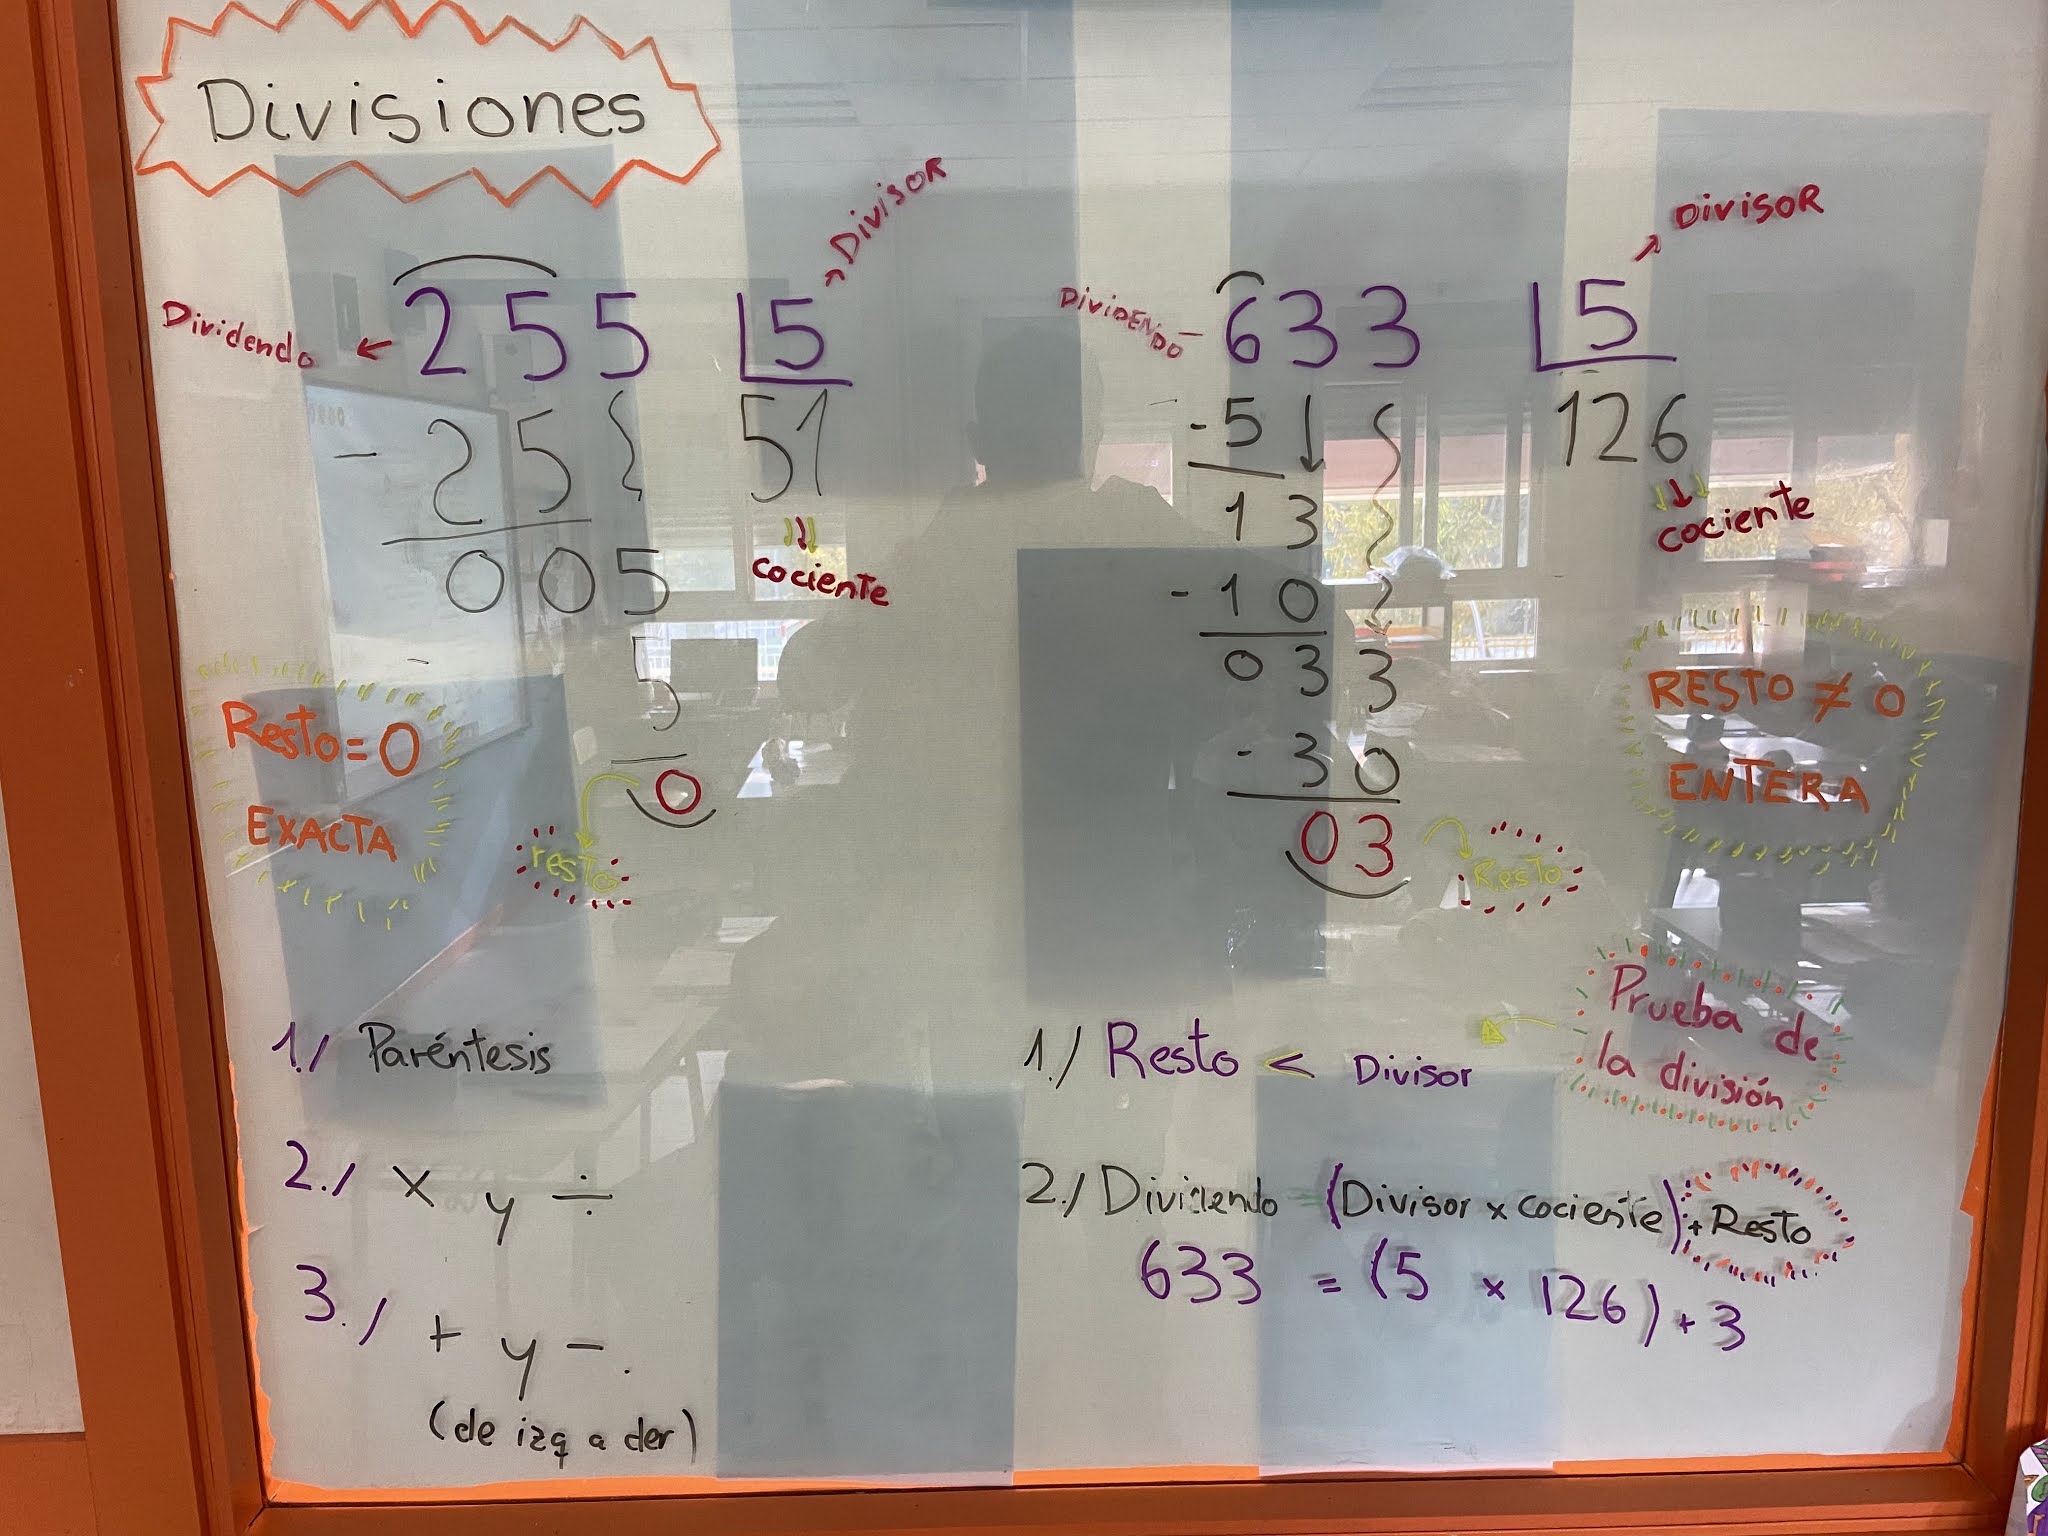 Divisiones
Dividendo ← 255 |5 → Divisor
- 25 51
cociente
005
- 5
0
resto
Resto = 0
EXACTA
DiViDENDO - 633 |5 → DivisoR
- 5 126
cociente
13
- 10
033
- 30
03
Resto
RESTO ≠ 0
ENTERA
1./ Paréntesis
2./ x y ÷
3./ + y - .
(de izq a der)
Prueba de
la división
1./ Resto < Divisor
2./ Dividendo = (Divisor x cociente) + Resto
633 = (5 x 126) + 3